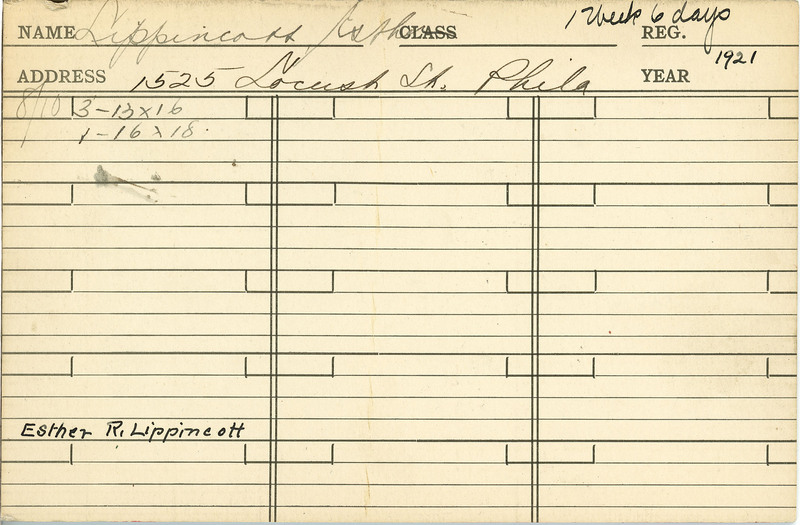 NAME Lippincott Esther CLASS 1 Week 6 days REG.
ADDRESS 1525 Locust St. Phila YEAR 1921
8/10 3-13x16
1-16x18.
Esther R. Lippincott